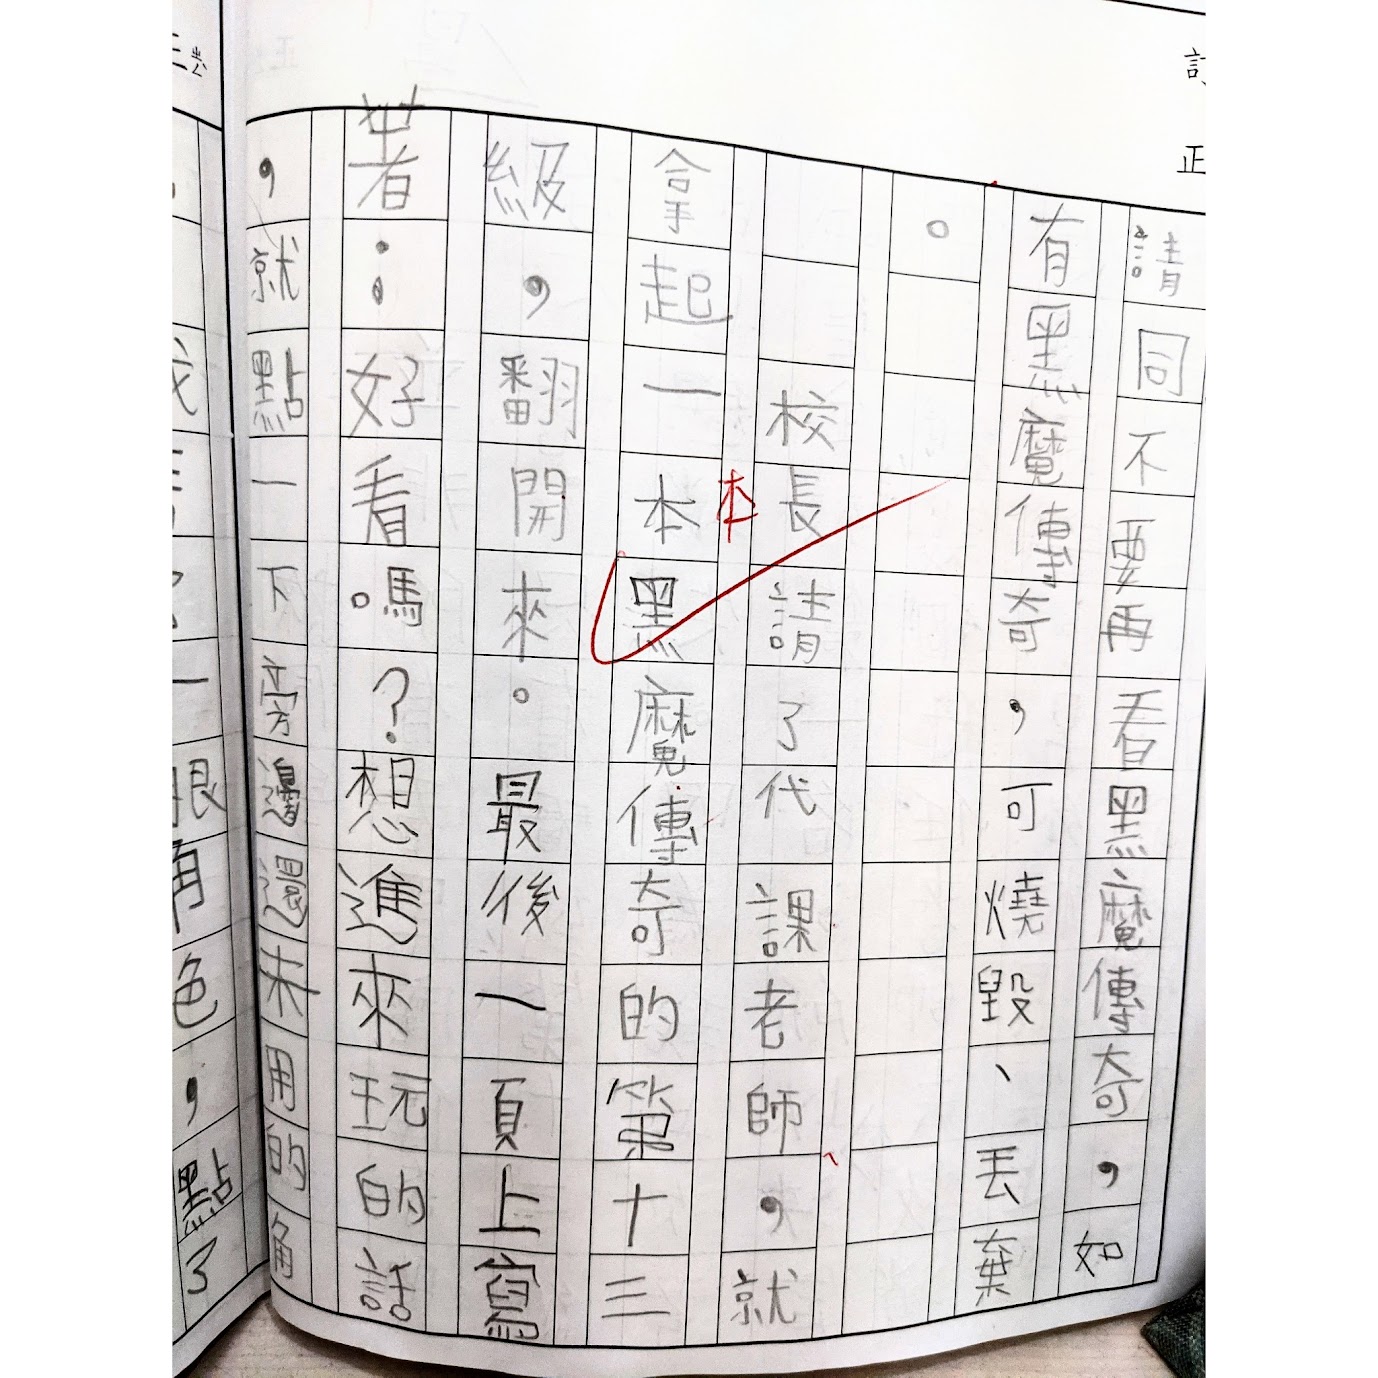 訂正
請同不要再看黑魔傳奇，如
有黑魔傳奇，可燒毀、丟棄
。
校長請了代課老師，就
本
拿起一本黑魔傳奇的第十三
級，翻開來。最後一頁上寫
著：好看嗎？想進來玩的話
，就點一下旁邊還未用的角
眼角色，點了